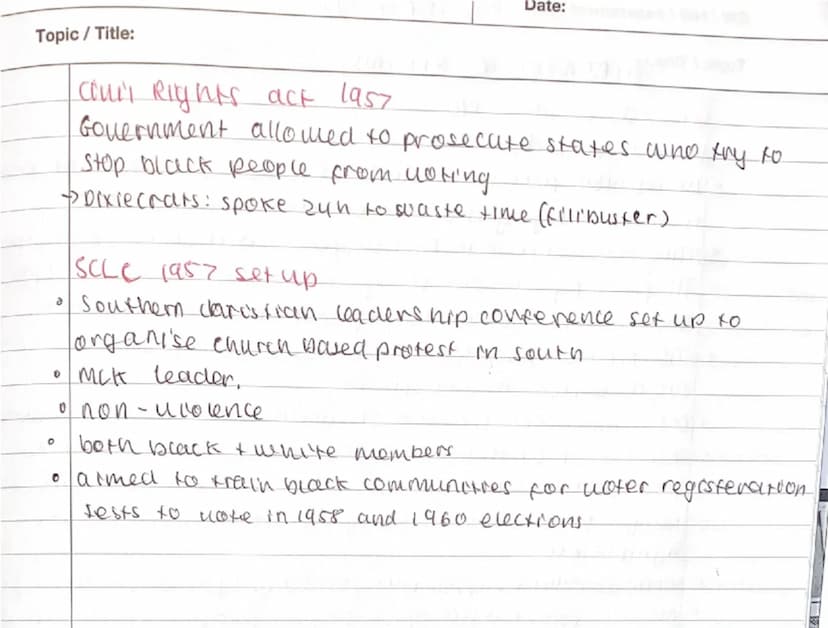 Date:
Topic / Title:
Civil Rights act 1957
Government allowed to prosecute states who try to
stop black people from voting
→ Dixiecrats: spoke 24h to waste time (fillibuster)
SCLC 1957 set up
• Southern christian leadership conference set up to
organise church based protest in south
• MLK leader.
• non-violence
• both black + white members
• aimed to train black communities for voter registeration
tests to vote in 1958 and 1960 elections